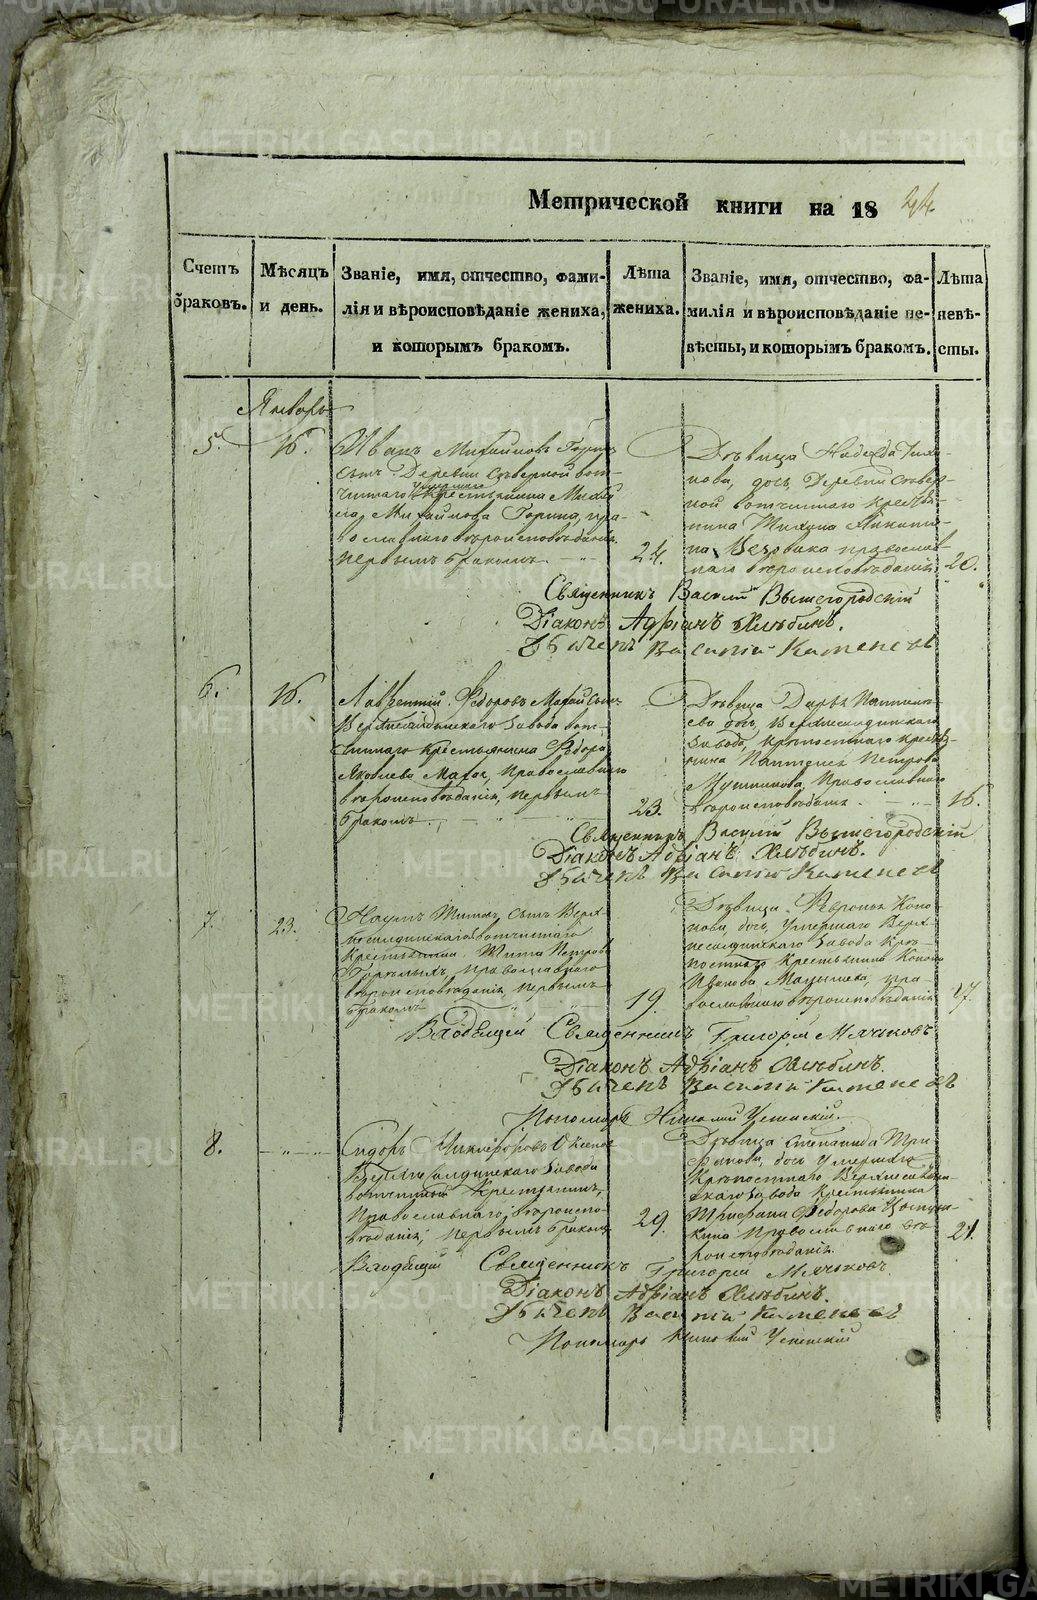 Метрической книги на 18
Счетъ браковъ.
Мѣсяцъ и день.
Званіе, имя, отчество, фами-
лія и вѣроисповѣданіе жениха,
и которымъ бракомъ.
Лѣта
жениха.
Званіе, имя, отчество, фа-
милія и вѣроисповѣданіе не-
вѣсты, и которымъ бракомъ.
Лѣта
невѣ-
сты.
Январь
5.
16.
Иванъ Михайловъ
сынъ Деревни Северной вот-
чиннаго умершаго крестьянина Михаи
ла Михайлова Горина, пра-
вославнаго вѣроисповѣданія
первымъ бракомъ.
24.
Дѣвица Надежда Тихо-
нова, дочь Деревни Север-
ной вотчиннаго крестья-
нина Тихона Никити-
на православ-
наго вѣроисповѣданія
20.
Священникъ Василій Вышегородскій
Діаконъ Адріанъ Хлѣбинъ.
Василій Каменевъ
6.
16.
Лаврентій Ѳедоровъ сынъ
Верхнесалдинскаго завода вот-
чиннаго крестьянина Ѳедора
Яковлева Православнаго
вѣроисповѣданія, первымъ
бракомъ.
23.
Дѣвица Дарья Пантиле-
ева дочь, Верхнесалдинскаго
завода, крѣпостнаго крестья-
нина Пантелея Петрова
Православнаго
вѣроисповѣданія.
16.
Священникъ Василій Вышегородскій
Діаконъ Адріанъ Хлѣбинъ.
Василій Каменевъ
7.
23.
Наумъ Титовъ сынъ Верх-
несалдинскаго вотчиннаго
Крестьянина Тита Петрова
Горѣлыхъ, православнаго
вѣроисповѣданія, первымъ
бракомъ
19.
Дѣвица Ѳевронья Коно-
нова, дочь, Умершаго Верх-
несалдинскаго завода Крѣ-
постнаго Крестьянина Конона
Иванова пра-
вославнаго вѣроисповѣданія
17.
Священникъ Григорій Мячковъ
Діаконъ Адріанъ Хлѣбинъ.
Василій Каменевъ
Пономарь Николай Успенскій.
8.
Сидоръ Никифоровъ
Верхнесалдинскаго завода
вотчинный Крестьянинъ,
Православнаго, вѣроиспо-
вѣданія, первымъ бракомъ
29.
Дѣвица Степанида Три-
фанова, дочь Умершаго
Крѣпостнаго Верхнесалдин-
скаго завода Крестьянина
Трифана Ѳедорова
Православнаго вѣ-
роисповѣданія.
21.
Священникъ Григорій Мячковъ
Діаконъ Адріанъ Хлѣбинъ.
Василій Каменевъ
Пономарь Николай Успенскій
METRIKI.GASO-URAL.RU